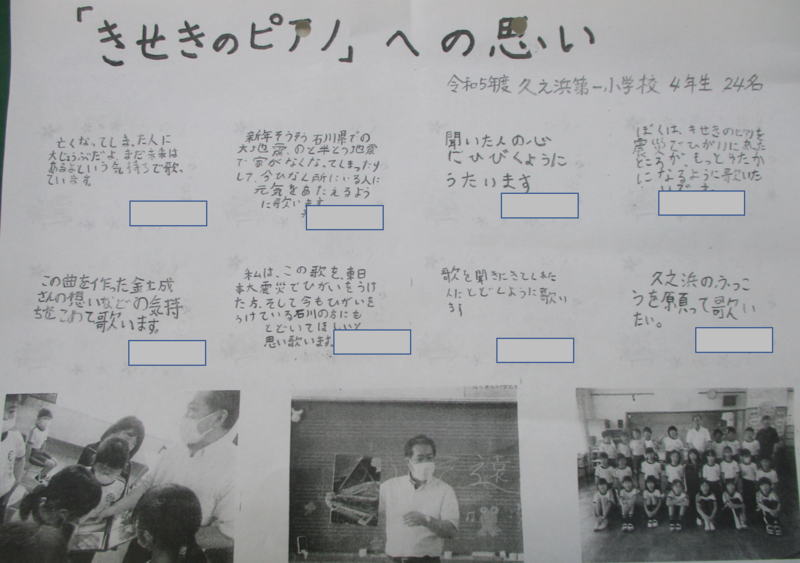 「きせきのピアノ」への思い
令和5年度 久之浜第一小学校 4年生 24名
亡くなってしまった人に
大じょうぶだよまだ未来は
あるよという気持ちで歌っ
ています
新年そうそう石川県での
大地震、のと半とう地震
で家がなくなってしまったり
して、今ひなん所にいる人に
元気をあたえるよう
に歌います
聞いた人の心
にひびくように
うたいます
ぼくは、きせきのピアノを
震災でひがいにあった
どころか、もっとうたか
になるように歌いたい
この曲を作った金土成
さんの想いなどの気持
ちをこめて歌います
私は、この歌を、東日
本大震災でひがいをうけ
た方、そして今もひがいを
うけている石川の方にも
とどいてほしいと
思い歌います
歌を聞きにきてくれた
人にとどくように歌い
ます
久之浜のふっこ
うを願って歌い
たい。